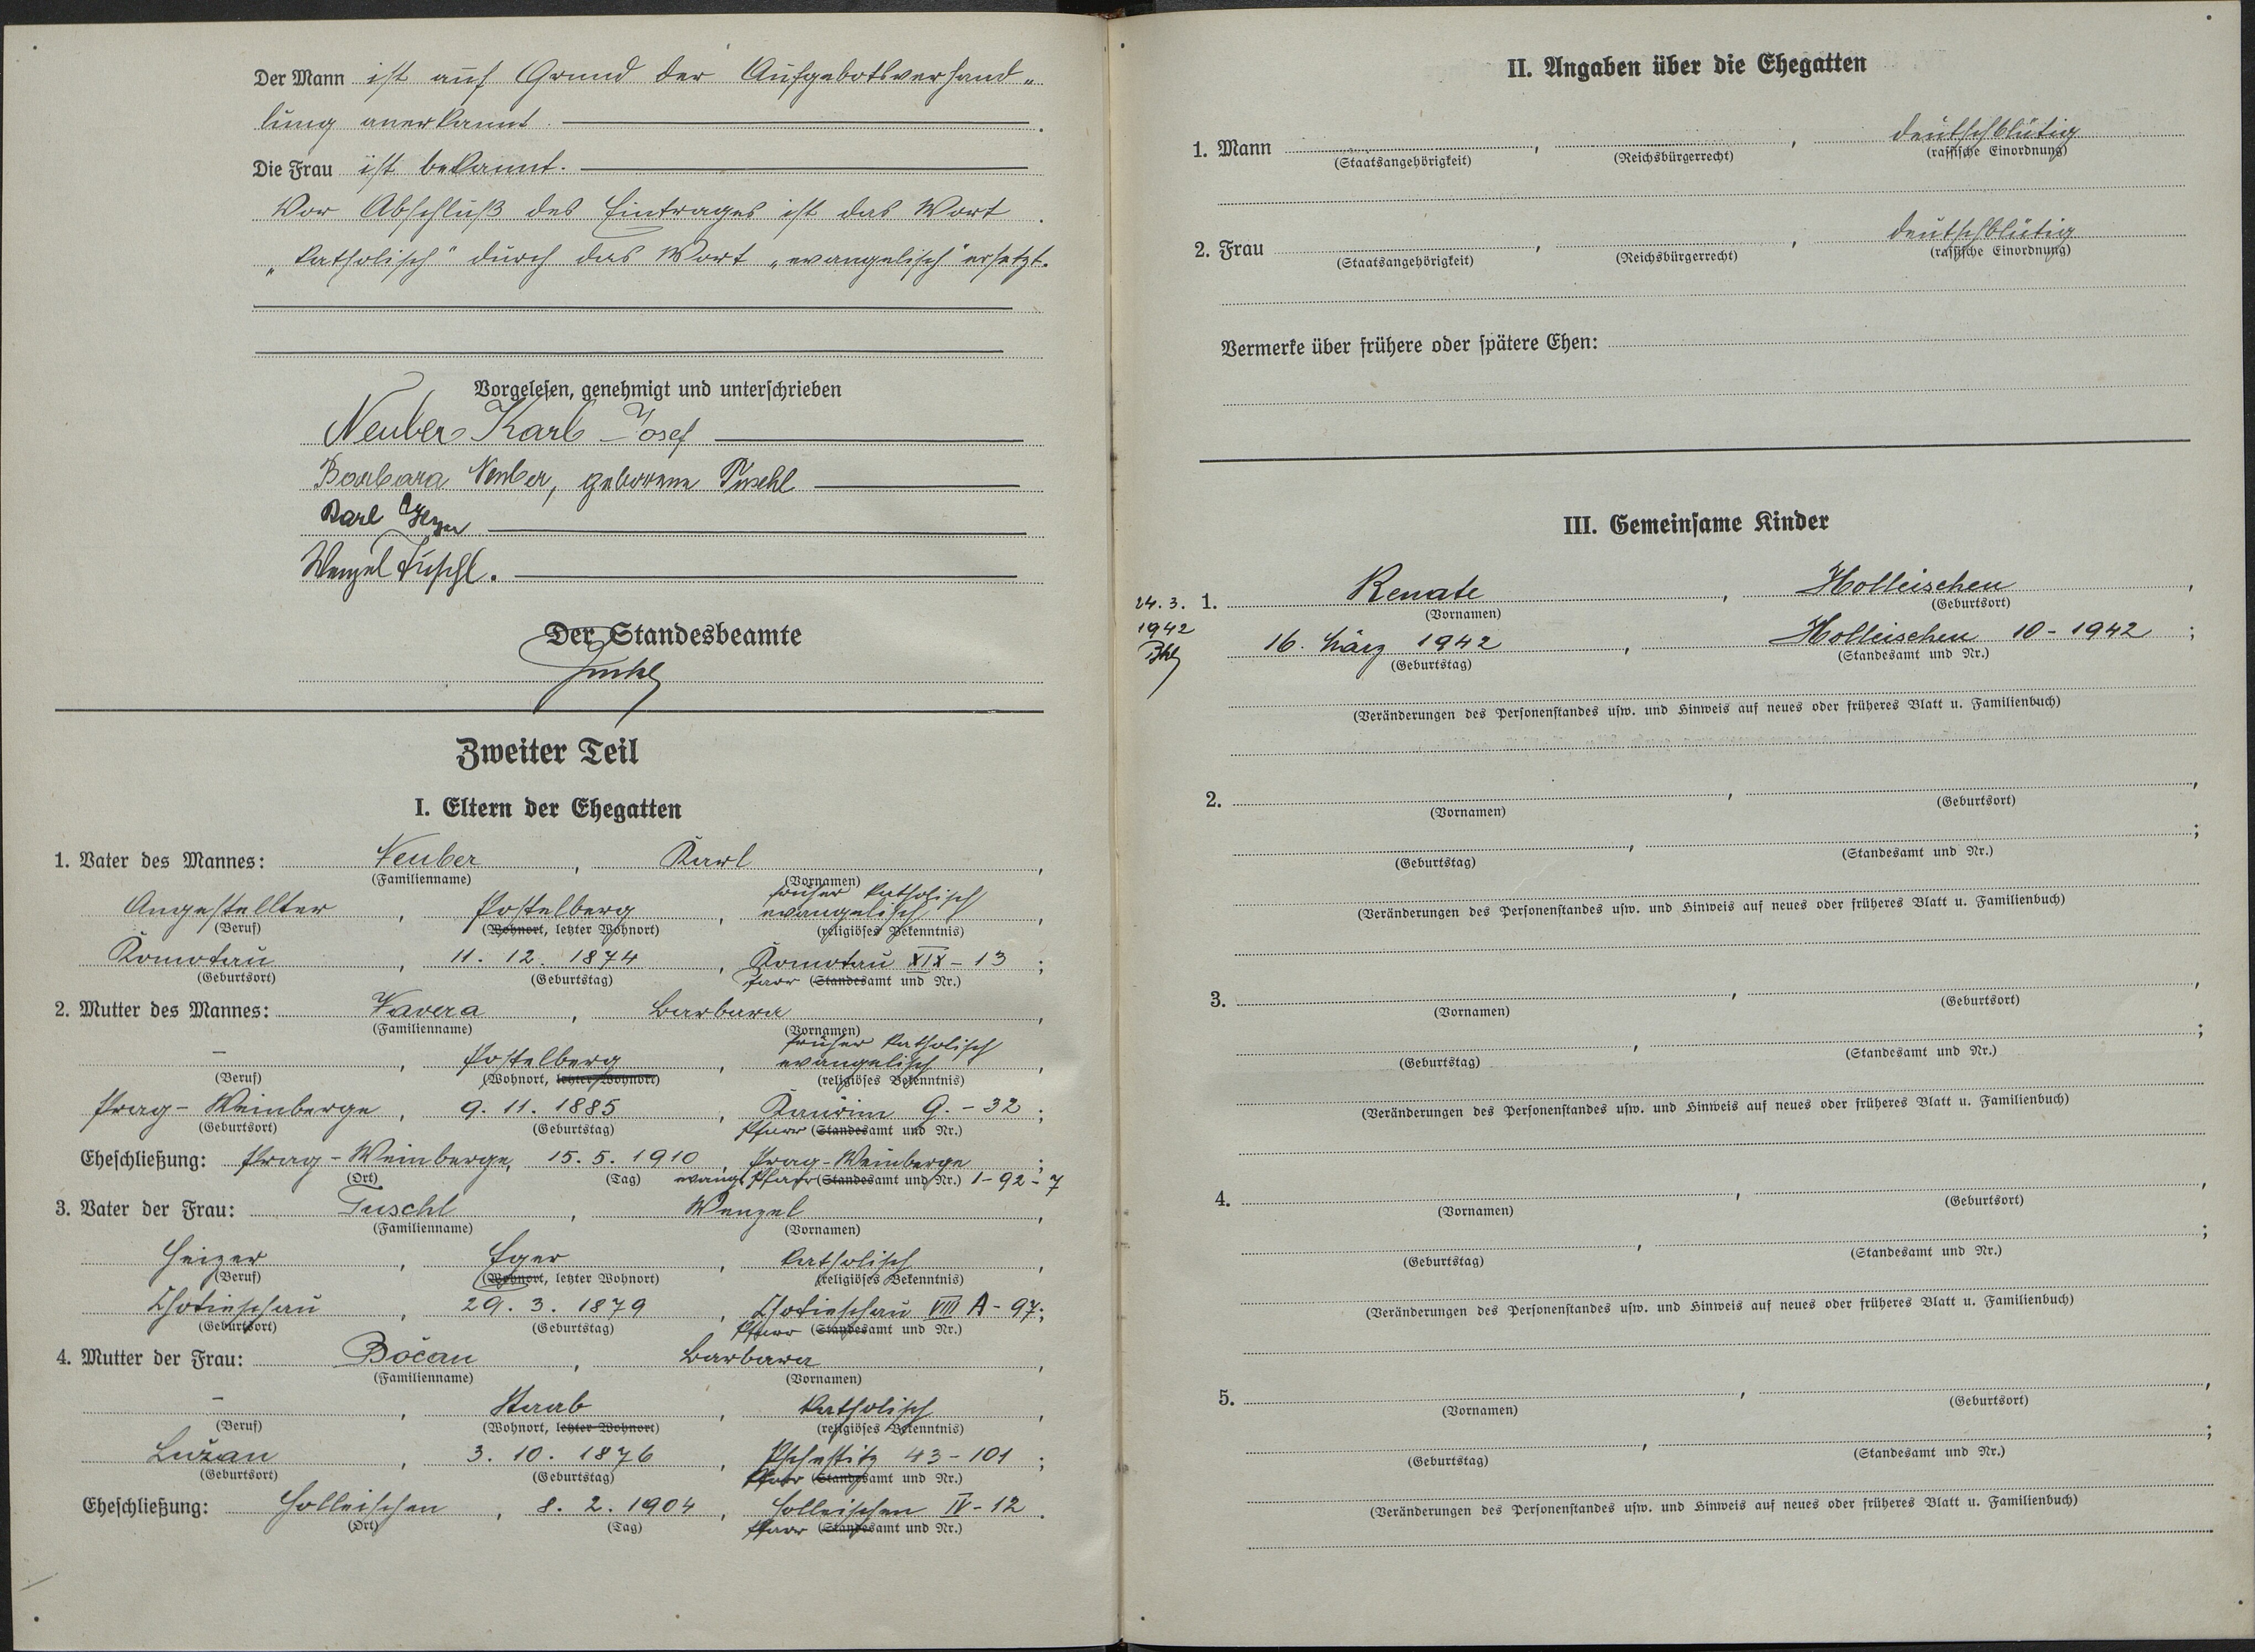 Der Mann ist auf Grund der Aufgebotsverhand„
lung anerkannt.
Die Frau ist bekannt.
Vor Abschluß des Eintrages ist das Wort
„katholisch" durch das Wort „evangelisch" ersetzt.
Vorgelesen, genehmigt und unterschrieben
Neuber Karl Josef
Barbara Neuber, geborene Tuschl
Karl
Wenzel Tuschl.
Der Standesbeamte
Zweiter Teil
I. Eltern der Ehegatten
1. Vater des Mannes: Neuber, Karl,
(Familienname) (Vornamen)
früher katholisch
Angestellter, Postelberg, evangelisch,
(Beruf) (Wohnort, letzter Wohnort) (religiöses Bekenntnis)
Komotau, 11. 12. 1874, Komotau XIX - 13;
(Geburtsort) (Geburtstag) Pfarr (Standesamt und Nr.)
2. Mutter des Mannes: Vavera, Barbara,
(Familienname) (Vornamen)
früher katholisch
–, Postelberg, evangelisch,
(Beruf) (Wohnort, letzter Wohnort) (religiöses Bekenntnis)
Prag - Weinberge, 9. 11. 1885, Kauřim 9. - 32;
(Geburtsort) (Geburtstag) Pfarr (Standesamt und Nr.)
Eheschließung: Prag - Weinberge, 15. 5. 1910, Prag - Weinberge;
(Ort) (Tag) evang. Pfarr (Standesamt und Nr.) 1 - 92 - 7
3. Vater der Frau: Tuschl, Wenzel,
(Familienname) (Vornamen)
Heizer, Eger, katholisch,
(Beruf) (Wohnort, letzter Wohnort) (religiöses Bekenntnis)
Chotieschau, 29. 3. 1879, Chotieschau VIII A - 97;
(Geburtsort) (Geburtstag) Pfarr (Standesamt und Nr.)
4. Mutter der Frau: Bočan, Barbara,
(Familienname) (Vornamen)
–, Staab, katholisch,
(Beruf) (Wohnort, letzter Wohnort) (religiöses Bekenntnis)
Lužan, 3. 10. 1876, Pschestitz 43 - 101;
(Geburtsort) (Geburtstag) Pfarr (Standesamt und Nr.)
Eheschließung: Holleischen, 8. 2. 1904, Holleischen IV - 12.
(Ort) (Tag) Pfarr (Standesamt und Nr.)
II. Angaben über die Ehegatten
1. Mann , , deutschblütig
(Staatsangehörigkeit) (Reichsbürgerrecht) (rassische Einordnung)
2. Frau , , deutschblütig
(Staatsangehörigkeit) (Reichsbürgerrecht) (rassische Einordnung)
Vermerke über frühere oder spätere Ehen:
III. Gemeinsame Kinder
24. 3. 1. Renate, Holleischen,
(Vornamen) (Geburtsort)
1942
16. März 1942, Holleischen 10 - 1942;
(Geburtstag) (Standesamt und Nr.)
(Veränderungen des Personenstandes usw. und Hinweis auf neues oder früheres Blatt u. Familienbuch)
2. , ,
(Vornamen) (Geburtsort)
, ;
(Geburtstag) (Standesamt und Nr.)
(Veränderungen des Personenstandes usw. und Hinweis auf neues oder früheres Blatt u. Familienbuch)
3. , ,
(Vornamen) (Geburtsort)
, ;
(Geburtstag) (Standesamt und Nr.)
(Veränderungen des Personenstandes usw. und Hinweis auf neues oder früheres Blatt u. Familienbuch)
4. , ,
(Vornamen) (Geburtsort)
, ;
(Geburtstag) (Standesamt und Nr.)
(Veränderungen des Personenstandes usw. und Hinweis auf neues oder früheres Blatt u. Familienbuch)
5. , ,
(Vornamen) (Geburtsort)
, ;
(Geburtstag) (Standesamt und Nr.)
(Veränderungen des Personenstandes usw. und Hinweis auf neues oder früheres Blatt u. Familienbuch)